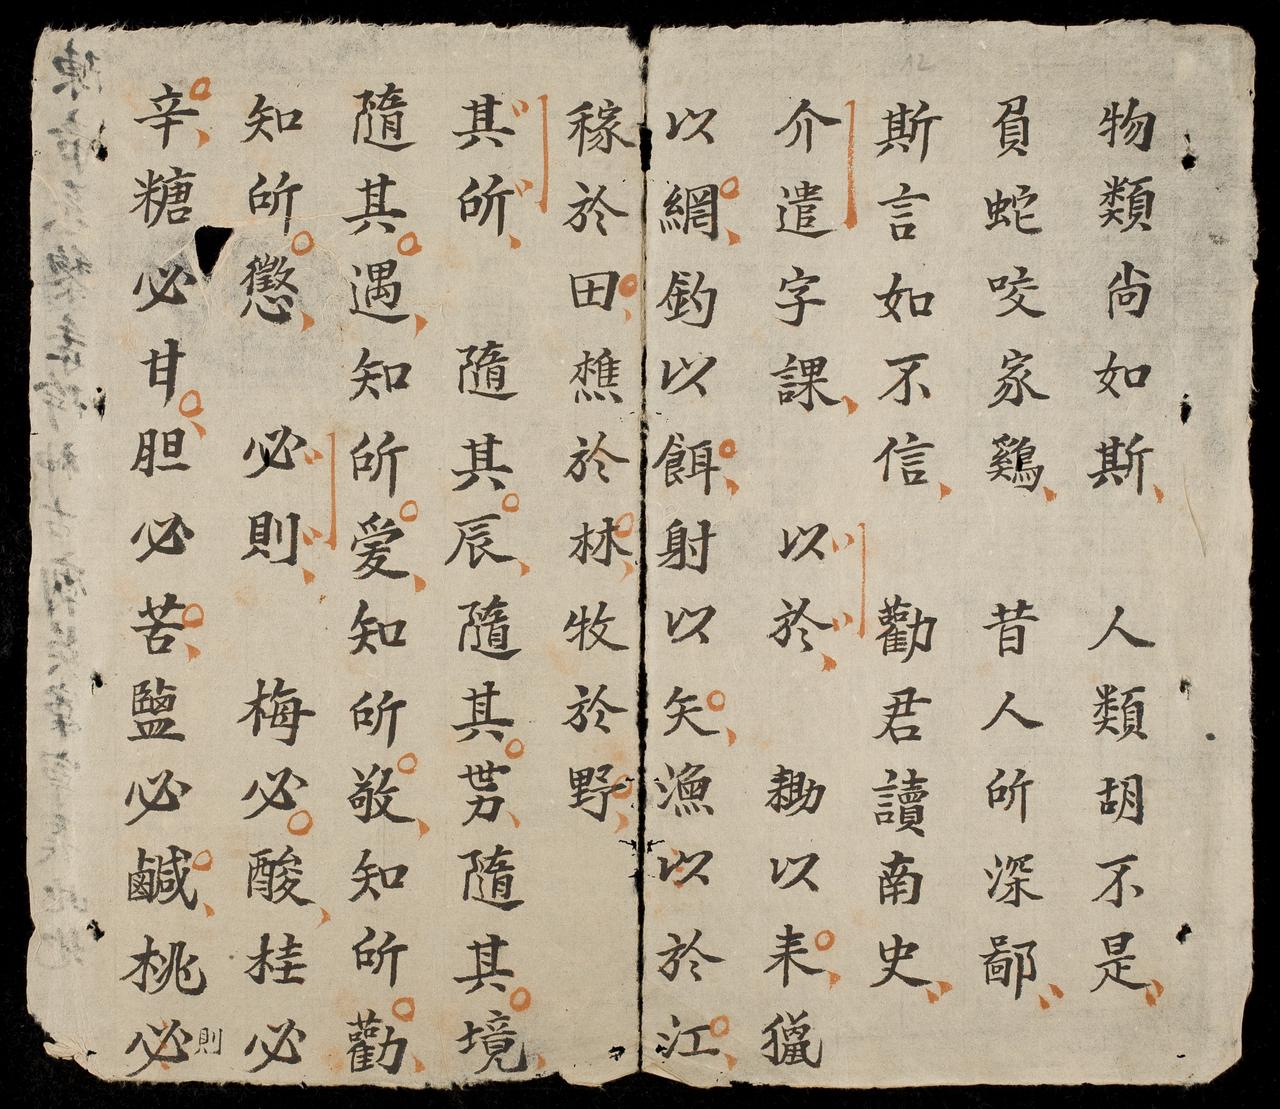 物類尚如斯　人類胡不是
負蛇咬家鷄　昔人所深鄙
斯言如不信　勸君讀南史
介遣字課　以於　耡以耒獵
以網釣以餌射以矢漁以於江
稼於田樵於林牧於野
其所　隨其辰隨其势隨其境
隨其遇知所爱知所敬知所勸
知所懲　必則　梅必酸桂必
辛糖必甘胆必苦鹽必鹹桃必
則